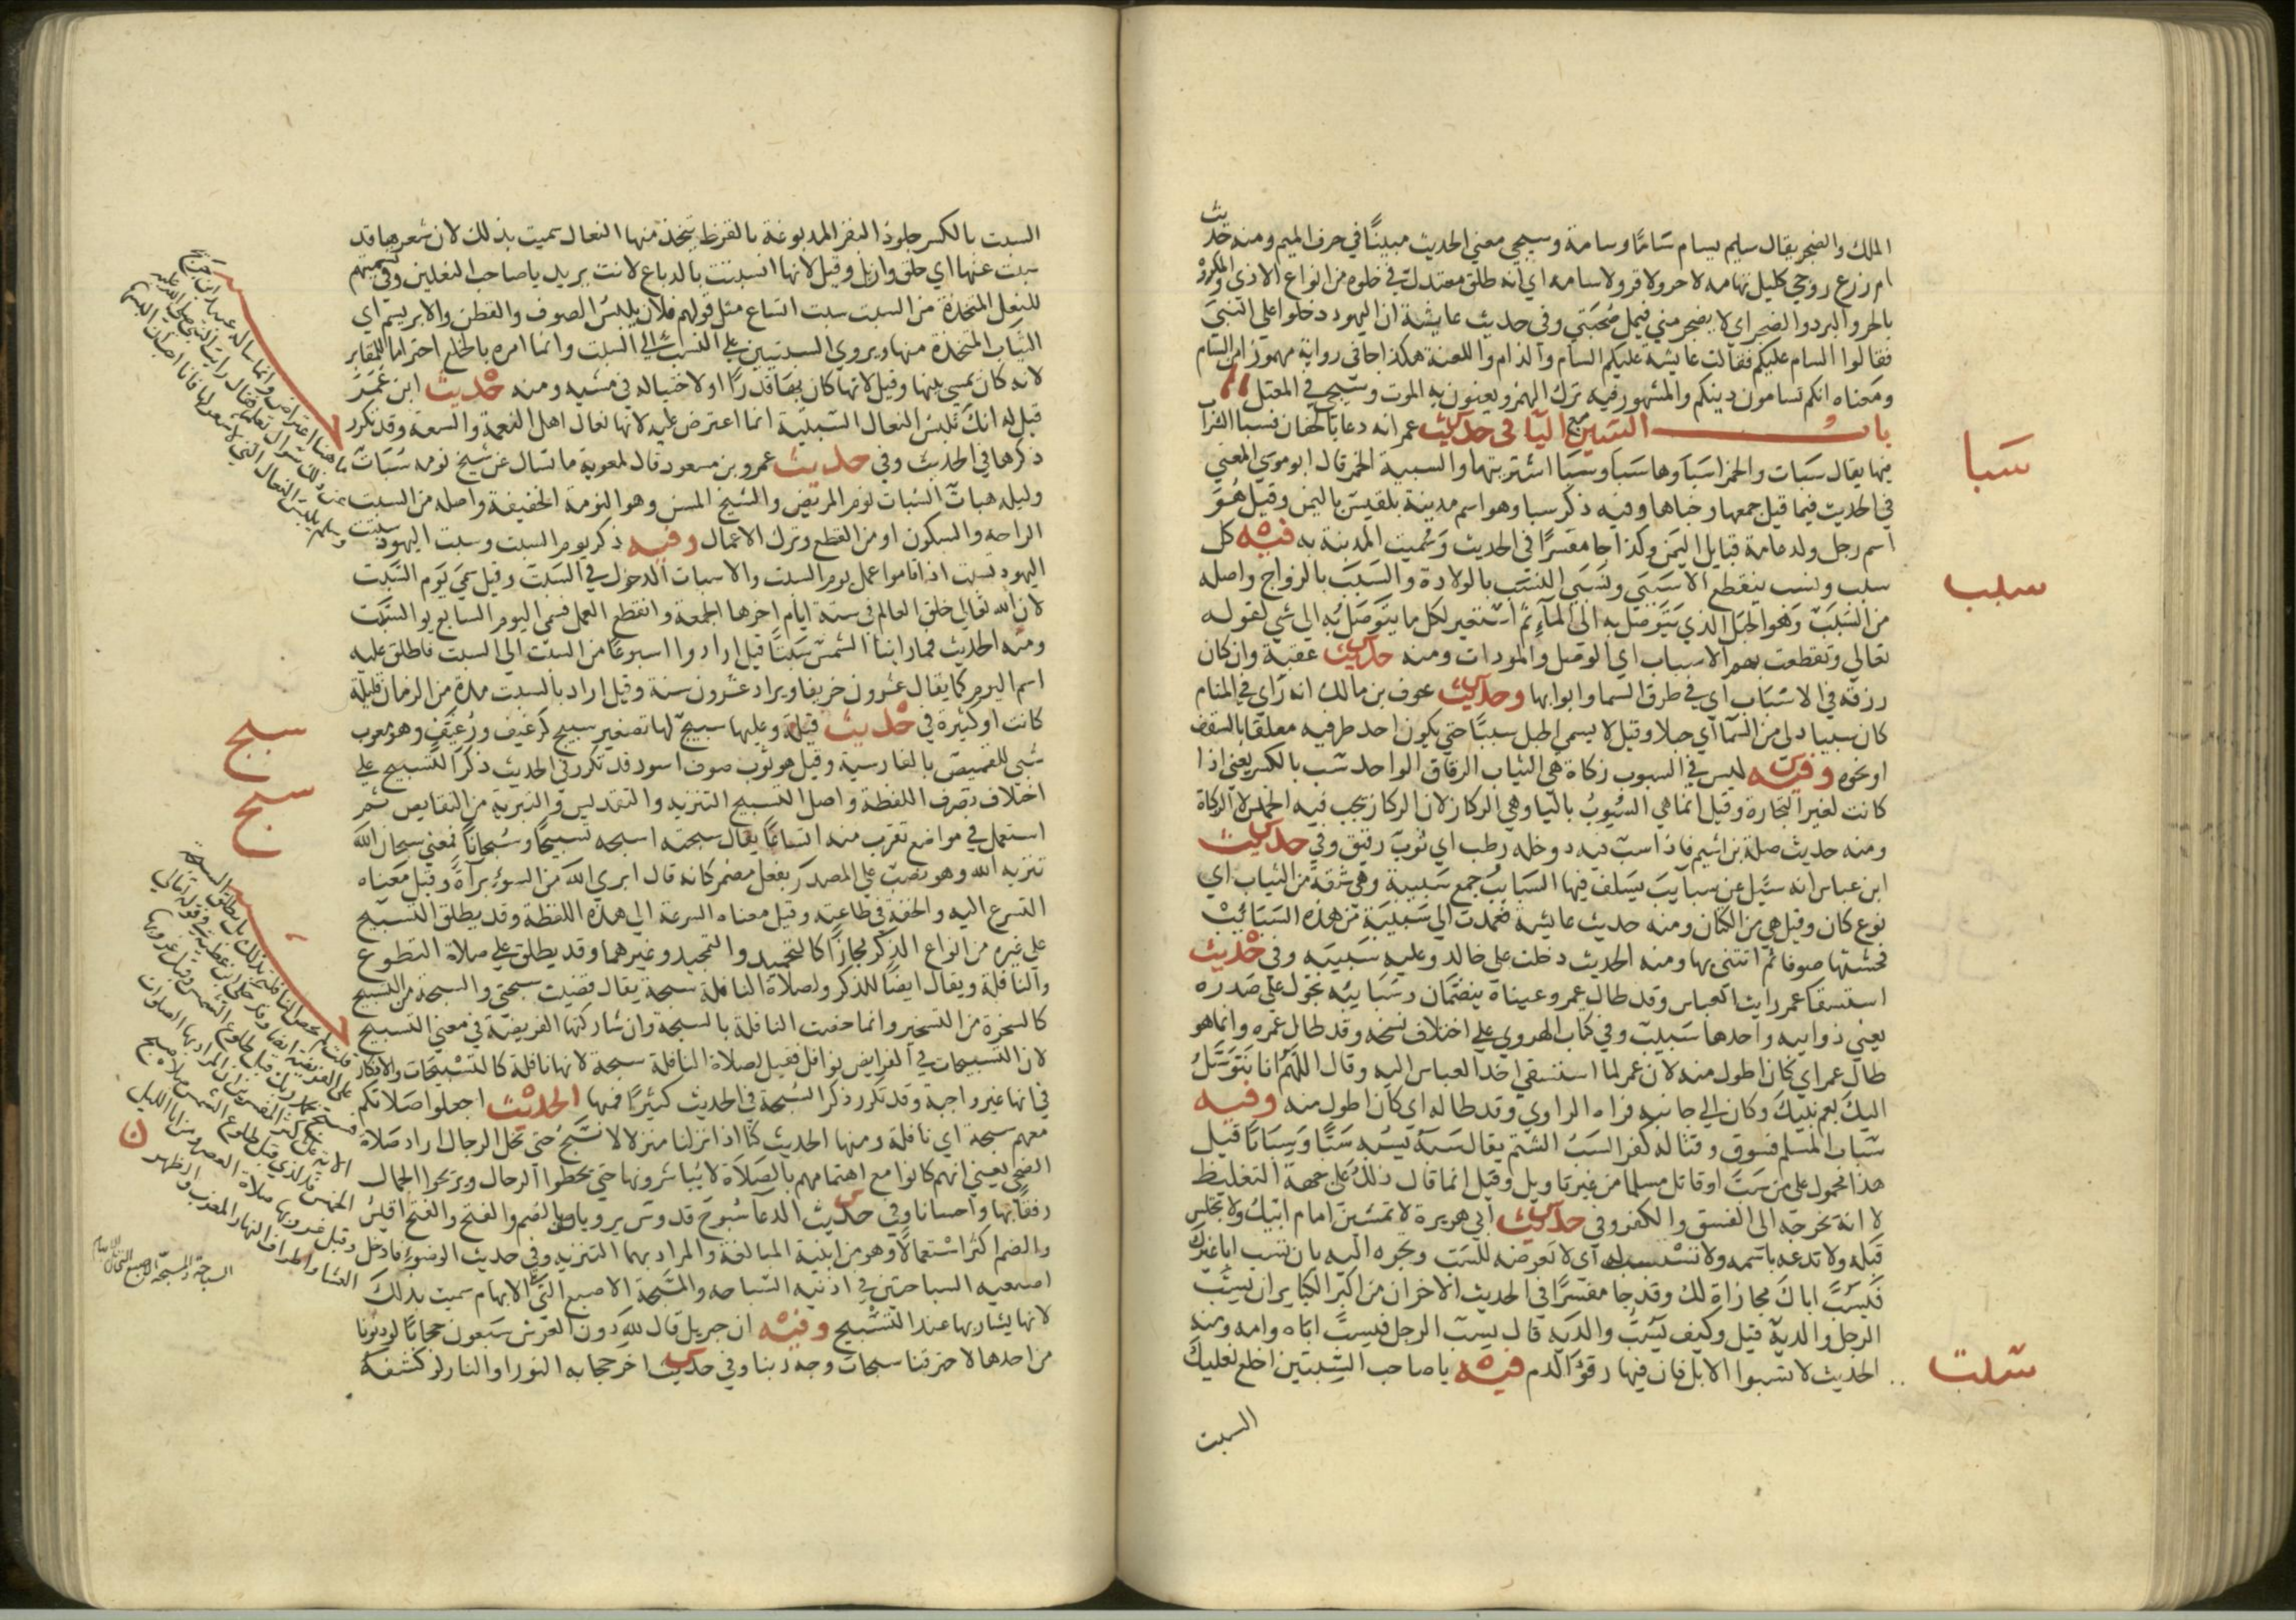 الملك والضجر يقال سايم يسام سَامًا وسامة وسيجي معني الحديث مبينًا في حرف الميم ومنه حديث
ام زرع زوجي كليل تهامه لا حر ولا قر ولا سامه اي انه طلق معتدل في خلوه من انواع الاذي والمكروه
بالحر والبرد والضجر اي لا يضجر مني فيمل صُحبَتي وفي حديث عايشة ان اليهود دخلوا علي النبي
فقالوا السام عليكم فقالت عايشة عليكم السام والذام واللعنة هكذا جا في رواية مهموزا من السام
ومعناه انكم تسامون دينكم والمشهور فيه ترك الهمز ويعنون به الموت وسيجي في المعتل
باب السين مع البا في حديث عمر انه دعا بالجفان فسبا الشراب
سبا
فيها يقال سَبَات والخمر اسبَا وها سَبَا وسَبَا اشتريتها والسبية الخمر قال ابو موسي المعني
في الحديث فيما قيل جمعها وخباها وفيه ذكر سبا وهو اسم مدينة بلقيس باليمن وقيل هُوَ
اسم رجل ولد عامة قبايل اليمن وكذا جا مفسرًا في الحديث وسُميت المدينة به فيه كل
سبب
سبب ونسب ينقطع الا سَبَبي ونَسَبي النسَب بالولادة والسَبَبَ بالزواج واصله
من السَبَبَ وَهوَ الحَبَل الذي يَتَوَصَل به الي المآءِ ثم استعير لكل ما يتَوصَل به الي شي لقوله
تعالي وتقطعت بهم الاسباب اي الوصل والمودات ومنه حديث عقبة وان كان
رزقه في الاسْبَاب اي في طرق السما وابوابها وحديث عوف بن مالك انه رَاي في المنام
كان سببا دلي من السَمآ اي حبلا وقيل لا يسمي الحبل سببًا حتي يكون احد طرفيه معلقا بالسقف
او نحوه وفيه ليس في السبوب زكاة هي الثياب الرقاق الواحد سب بالكسر يعني اذا
كانت لغير التجارة وقيل انما هي السُيُوبُ باليا وهي الركاز لان الركاز يجب فيه الخمس لا الزكاة
ومنه حديث صلة بن اشيم فاذا سب فيه دوخلة رطب اي ثوب رقيق وفي حديث
ابن عباس انه سُيل عن سبايب يسلف فيها السَبَايب جمع سَبيبة وهي شقة من الثياب اي
نوع كان وقيل هي من الكتان ومنه حديث عايشة فعمدت الي سَبيبَة من هذه السَبَائبْ
فحشتها صوفا ثم اتتني بها ومنه الحديث دخلت علي خالد وعليه سَبيبَه وفي حديث
استسقا عمر رايت العباس وقد طال عمر وعيناه ينضمّان وسَبَايبُه تجُول علي صَدره
يعني ذوايبه واحدها سَبيب وفي كتاب الهروي علي اختلاف نسخه وقد طال عمره وانما هو
طال عمر اي كان اطول منه لان عمر لما استسقي اخذ العباس اليه وقال اللَهُمَّ انا نَتَوَسَلُ
اليك بعم نبيك وكان الي جانبه فراه الراوي وقد طاله اي كان اطول منه وفيه
سباب المسلم فسوق وقتاله كفر السَبُ الشتم يقال سَبَهُ يسُبه سَبًّا وَسِبَابًا قيل
هذا محمول علي من سَبَّ او قاتل مسلما من غير تاويل وقيل انما قال ذلك علي جهة التغليظ
لا انه يخرجه الي الفسق والكفر وفي حديث ابي هريرة لا تمشين امام ابيك ولا تجلس
قبله ولا تدعه باسمه ولا تستسب له اي لا تعرضه للسَب وتجره اليه بان تسب ابا غيرك
فَيسُبَّ اباك مجازاة لك وقد جا مفسرًا في الحديث الاخر ان من اكبر الكباير ان يسُبَّ
الرجل والديه قيل وكيف يَسُبُّ والديه قال يسب الرجل فيسبّ اباه وامه ومنه
الحديث لا تسبوا الابل فان فيها رقؤ الدم فيه يا صاحب السِبتين اخلع نعليك
سبت
السبت
السبت بالكسر جلود البقر المدبوغة بالقرظ يتخذ منها النعال سميت بذلك لان شعرها قد
سبت عنها اي حلق وازيل وقيل لانها انسبتت بالدباغ لانت يريد يا صاحب النعلين وفي تسميتهم
للنعل المتخذة من السبت سبت اتساع مثل قولهم فلان يلبسُ الصوف والقطن والابريسم اي
الثياب المتخذة منها ويروي السبتيين علي النسب الي السبت وانما امره بالخلع احتراما للمقابر
لانه كان يمشي بينها وقيل لانها كان بها قذرًا او لاختياله في مشيه ومنه حديث ابن عُمَر
قيل له انك تَلبسُ النعال السبتية انما اعترض عليه لانها نعال اهل النعمة والسعة وقد تكرر
ذكرها في الحديث وفي حديث عمرو بن مسعود قال لمعوية ما تسال عن شيخ نومه سُبَاتٌ
وليله هبات السُبات نوم المريض والشيخ المسن وهو النومة الخفيفة واصله من السبت
الراحه والسكون او من القطع وترك الاعمال وفيه ذكر يوم السبت وسبت اليهود سبتت
اليهود تسبت اذا قاموا عمل يوم السبت والاسبات الدخول في السبت وقيل سمي يَوم السَبت
لان الله تعالي خلق العالم في ستة ايام اخرها الجمعة وانقطع العمل فسمي اليوم السابع يو السَبَت
ومنه الحديث فما راينا الشمس سَبتًا قيل ارادوا اسبوعًا من السبت الي السبت فاطلق عليه
اسم اليوم كما يقال عشرون خريفا ويراد عشرون سنة وقيل اراد بالسبت مدة من الزمان قليلة
كانت او كثيرة في حديث قيلة وعليها سبيج لها تصغير سبيج كرغيف ورُغيّف وهو معرب
سبج
شبي للقميص بالفارسية وقيل هو ثوب صوف اسود قد تكرر في الحديث ذكر التسبيح علي
سبح
اختلاف تصرف اللفظة واصل التسبيح التنزيه والتقديس والتبرية من النقايص ثم
استعمل في مواضع تقرب منه اتساعًا يقال سبحته اسبحه تسبيحًا وسُبحانًا فمعني سبحان الله
تنزيه الله وهو نصب علي المصدر بفعل مضمر كانه قال ابري الله من السوء براةً وقيل معناه
التسرع اليه والخفة في طاعته وقيل معناه السرعة الي هذه اللفظة وقد يطلق التسبيح
علي غيره من انواع الذكر مجازًا كالتحميد والتمجيد وغيرهما وقد يطلق علي صلاة التطوع
والنافلة ويقال ايضا للذكر ولصلاة النافلة سبحة يقال قضيت سبحتي والسبحة من التسبيح
كالسخرة من التسخير وانما خصت النافلة بالسبحة وان شاركتها الفريضة في معني التسبيح
لان التسبيحات في الفرايض نوافل فقيل لصلاة النافلة سبحة لانها نافلة كالتسبيحات والاذكار
في انها غير واجبة وقد تكرر ذكر السُبحة في الحديث كثيرًا فمنها الحديث اجعلوا صلاتكم
معهم سبحة اي نافلة ومنها الحديث كنا اذا نزلنا منزلا لا نسَبحُ حتي نحل الرحال اراد صلاة
الضحي يعني انهم كانوا مع اهتمامهم بالصَلاة لا يُباشرونها حتي يحطوا الرحال ويريحوا الجمال
رفقًا بها واحسانا وفي حديث الدعآ سُبوح قدوس يرويان بالضم والفتح والفتح اقيسُ
والضم اكثر استعمالًا وهو من ابنية المبالغة والمراد بهما التنزيه وفي حديث الوضوء فادخل
اصبعيه السباحتين في اذنيه السباحه والمسَبحة الاصبع التي تلي الابهام سميت بذلك
لانها يشار بها عند التسْبيح وفيه ان جبريل قال للهِ دون العرش سَبعون حجابًا لو دنونا
من احدها لاحترقنا سبحات وجه ربنا وفي حديث اخر حجابه النور او النار لو كشفه
ما هنا اعتراض وانما ساله عبيد ابن جريج
عن ذلك سوال تعلم فقال رايت النبي صلي الله عليه
وسلم يلبس النعال التي لا شعر لها فانا احب ان البسها